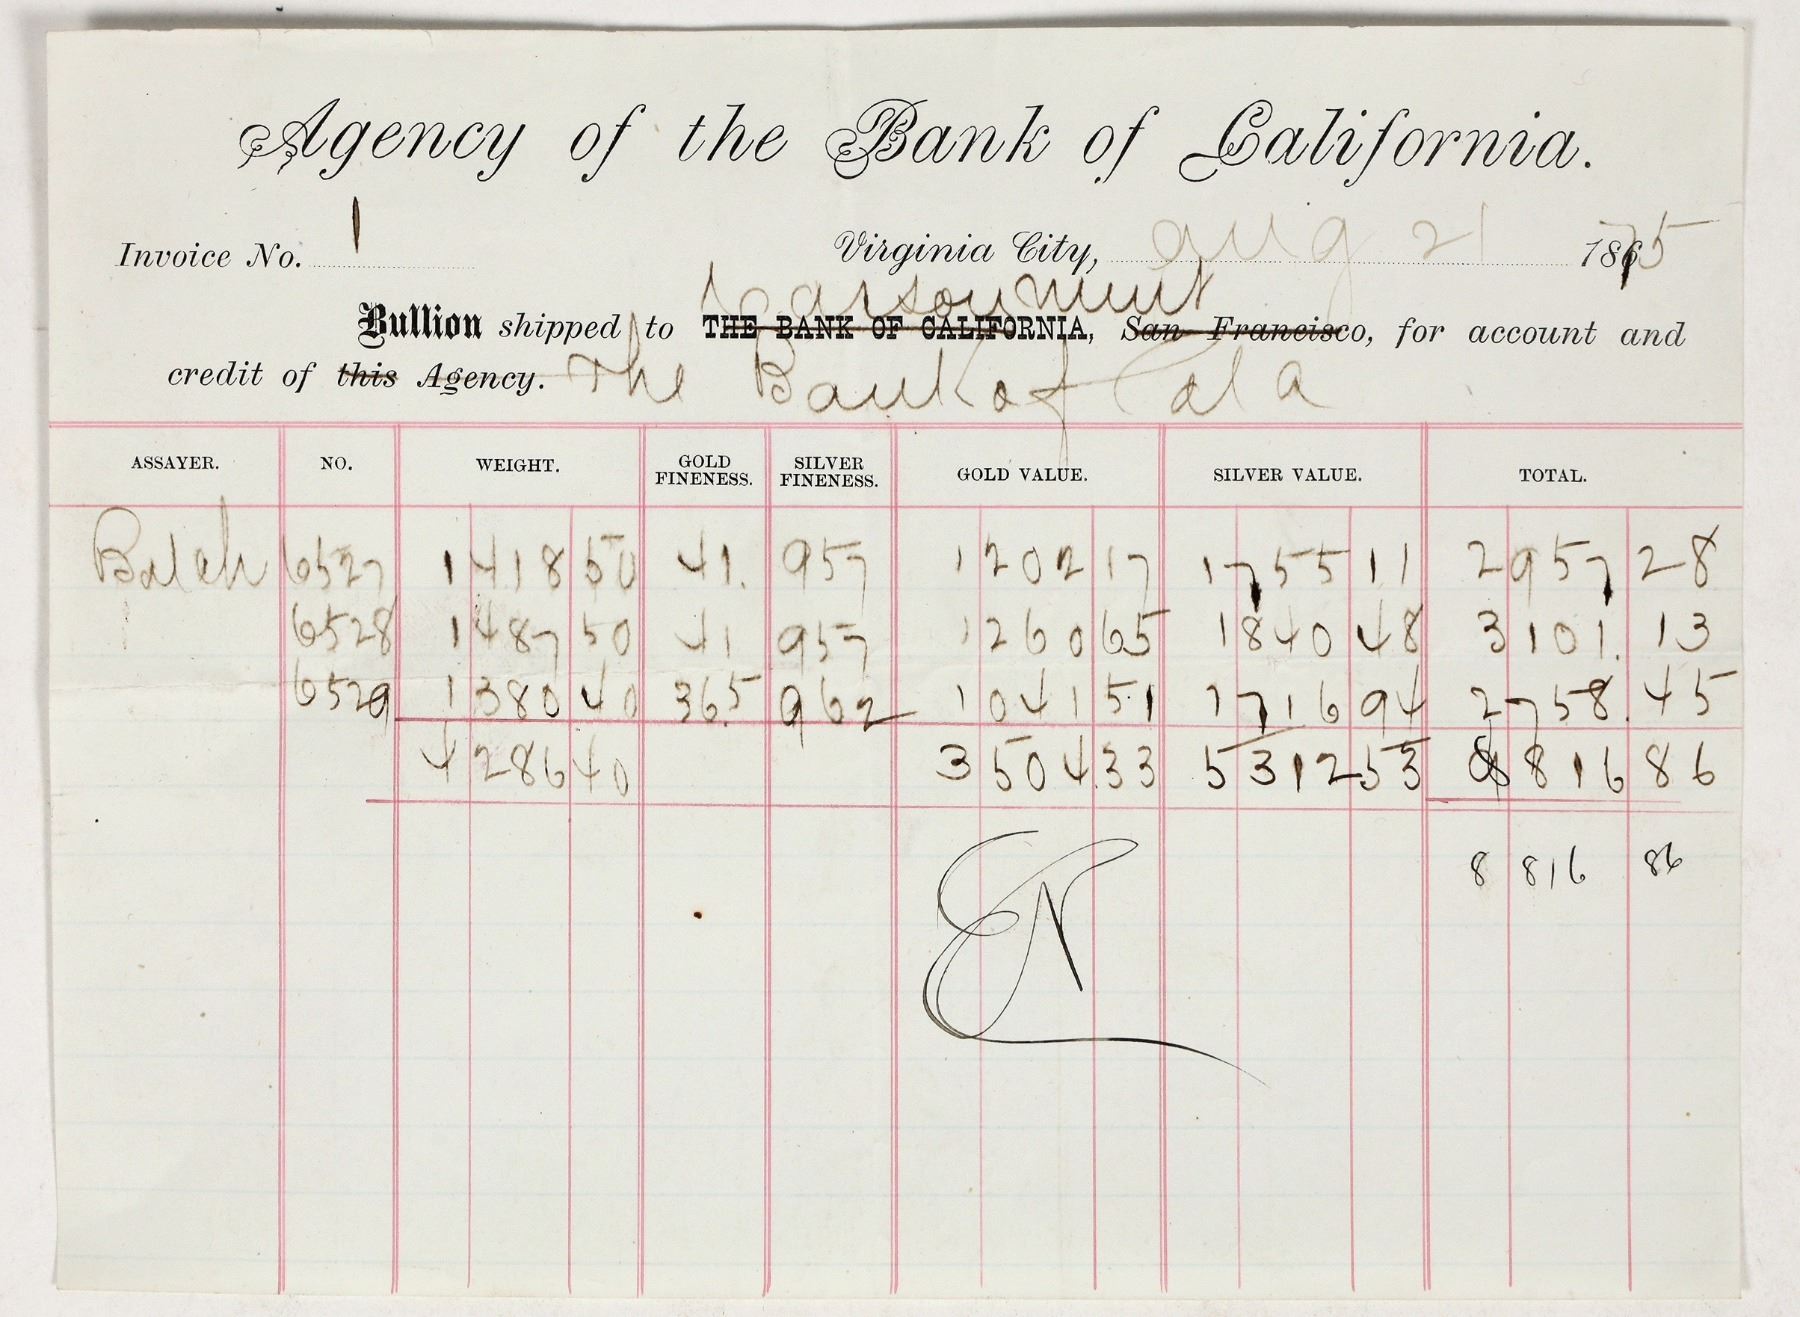 Agency of the Bank of California.
Invoice No. 1 Virginia City, Aug 21 1875
Carson Mint
Bullion shipped to THE BANK OF CALIFORNIA, San Francisco, for account and
credit of this Agency. The Bank of Cala
ASSAYER. NO. WEIGHT. GOLD FINENESS. SILVER FINENESS. GOLD VALUE. SILVER VALUE. TOTAL.
Balch 6527 1 418 50 41. 957 1 202 17 1 755 11 2 957 28
6528 1 487 50 41 957 1 260 65 1 840 48 3 101. 13
6529 1 380 40 36.5 962 1 041 51 1 716 94 2 758. 45
4 286 40 3 504.33 5 312 53 8 816 86
8 816 86
EN